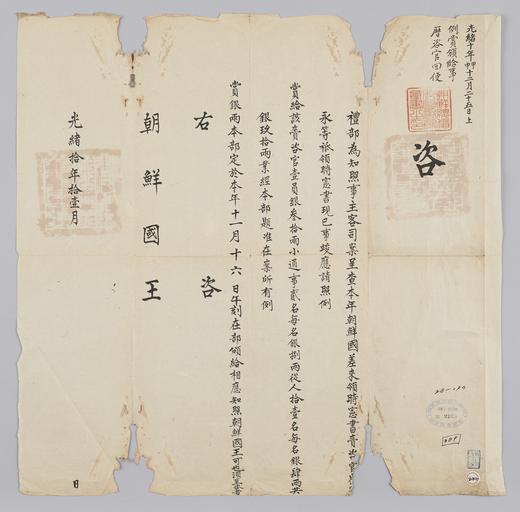 光緒十年甲申十二月二十五日上
例賞領給事
曆咨官回便
咨
禮部為知照事主客司案呈查本年朝鮮國差來領時憲書賫咨官
永等祗領時憲書現已事竣應請照例
賞給該賫咨官壹員銀叁拾兩小通事貳名每名銀捌兩從人拾壹名每名銀肆兩共
銀玖拾兩業經本部題准在案所有例
賞銀兩本部定於本年十一月十六日午刻在部頒給相應知照朝鮮國王可也須至咨者
右咨
朝鮮國王
光緒拾年拾壹月
日